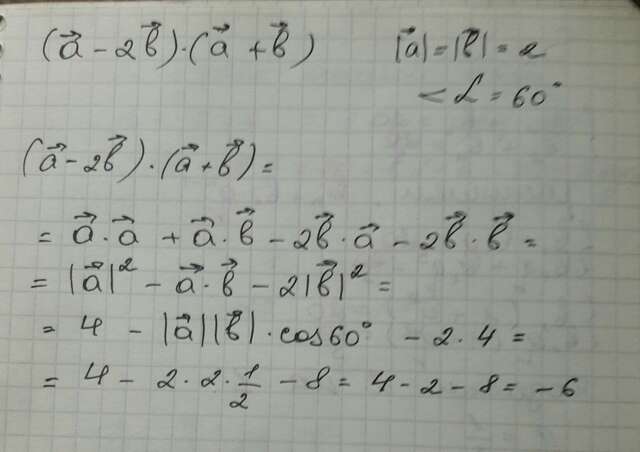 (a⃗ - 2b⃗)·(a⃗ + b⃗) |a⃗| = |b⃗| = 2
< α = 60°
(a⃗ - 2b⃗)·(a⃗ + b⃗) =
= a⃗·a⃗ + a⃗·b⃗ - 2b⃗·a⃗ - 2b⃗·b⃗ =
= |a⃗|² - a⃗·b⃗ - 2|b⃗|² =
= 4 - |a⃗||b⃗|·cos60° - 2·4 =
= 4 - 2·2·1/2 - 8 = 4 - 2 - 8 = -6